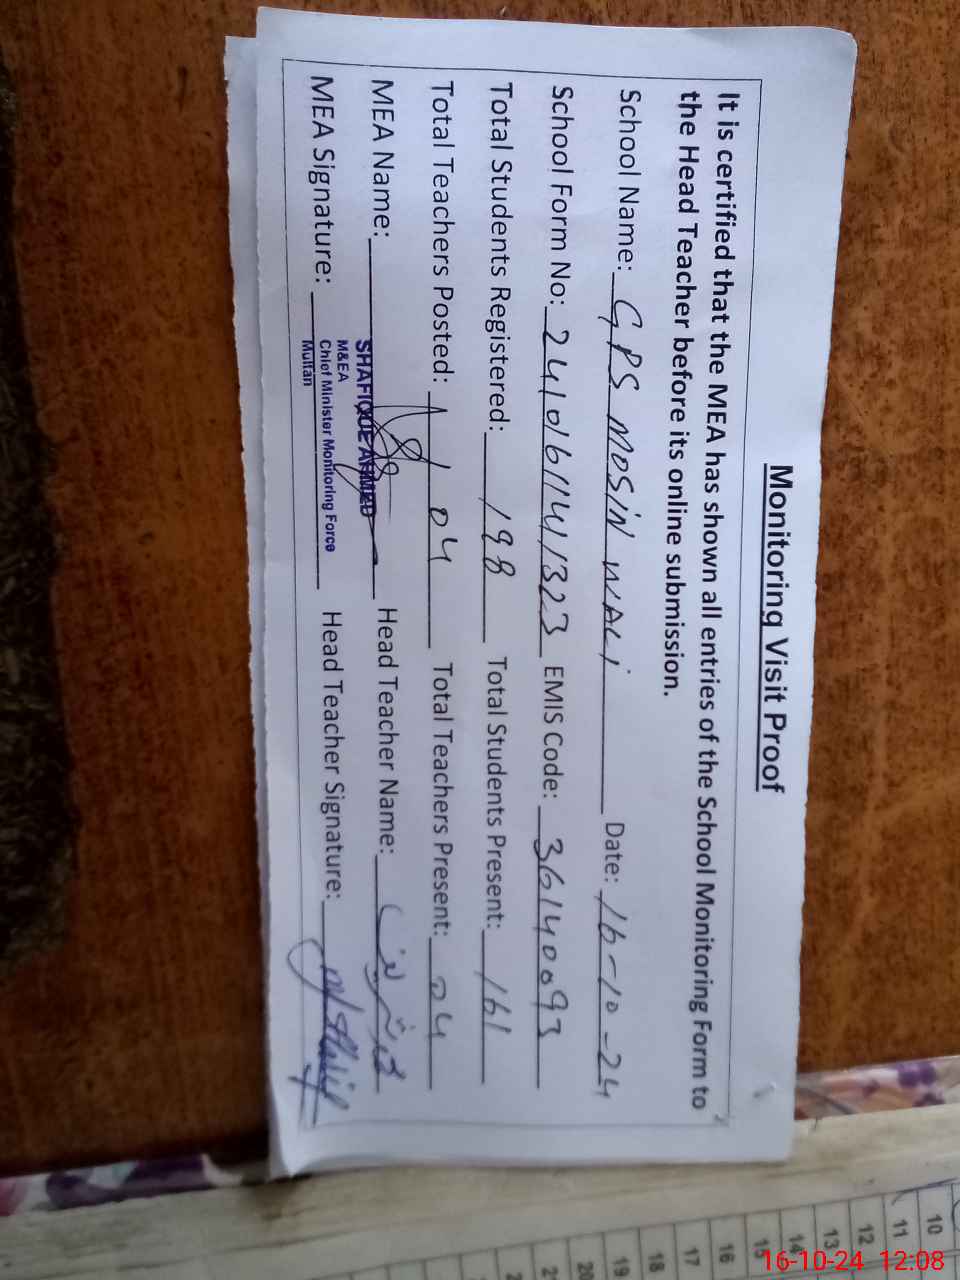 Monitoring Visit Proof
It is certified that the MEA has shown all entries of the School Monitoring Form to
the Head Teacher before its online submission.
School Name: GPS MOSIN WALI Date: 16-10-24
School Form No: 241016114141323 EMIS Code: 36140093
Total Students Registered: 198 Total Students Present: 161
Total Teachers Posted: 04 Total Teachers Present: 04
MEA Name: Head Teacher Name: محمد شریف
SHAFIQUE AHMED
M&EA
Chief Minister Monitoring Force
Multan
MEA Signature: Head Teacher Signature:
10
11
12
13
14
15
16
17
18
19
20
16-10-24 12:08